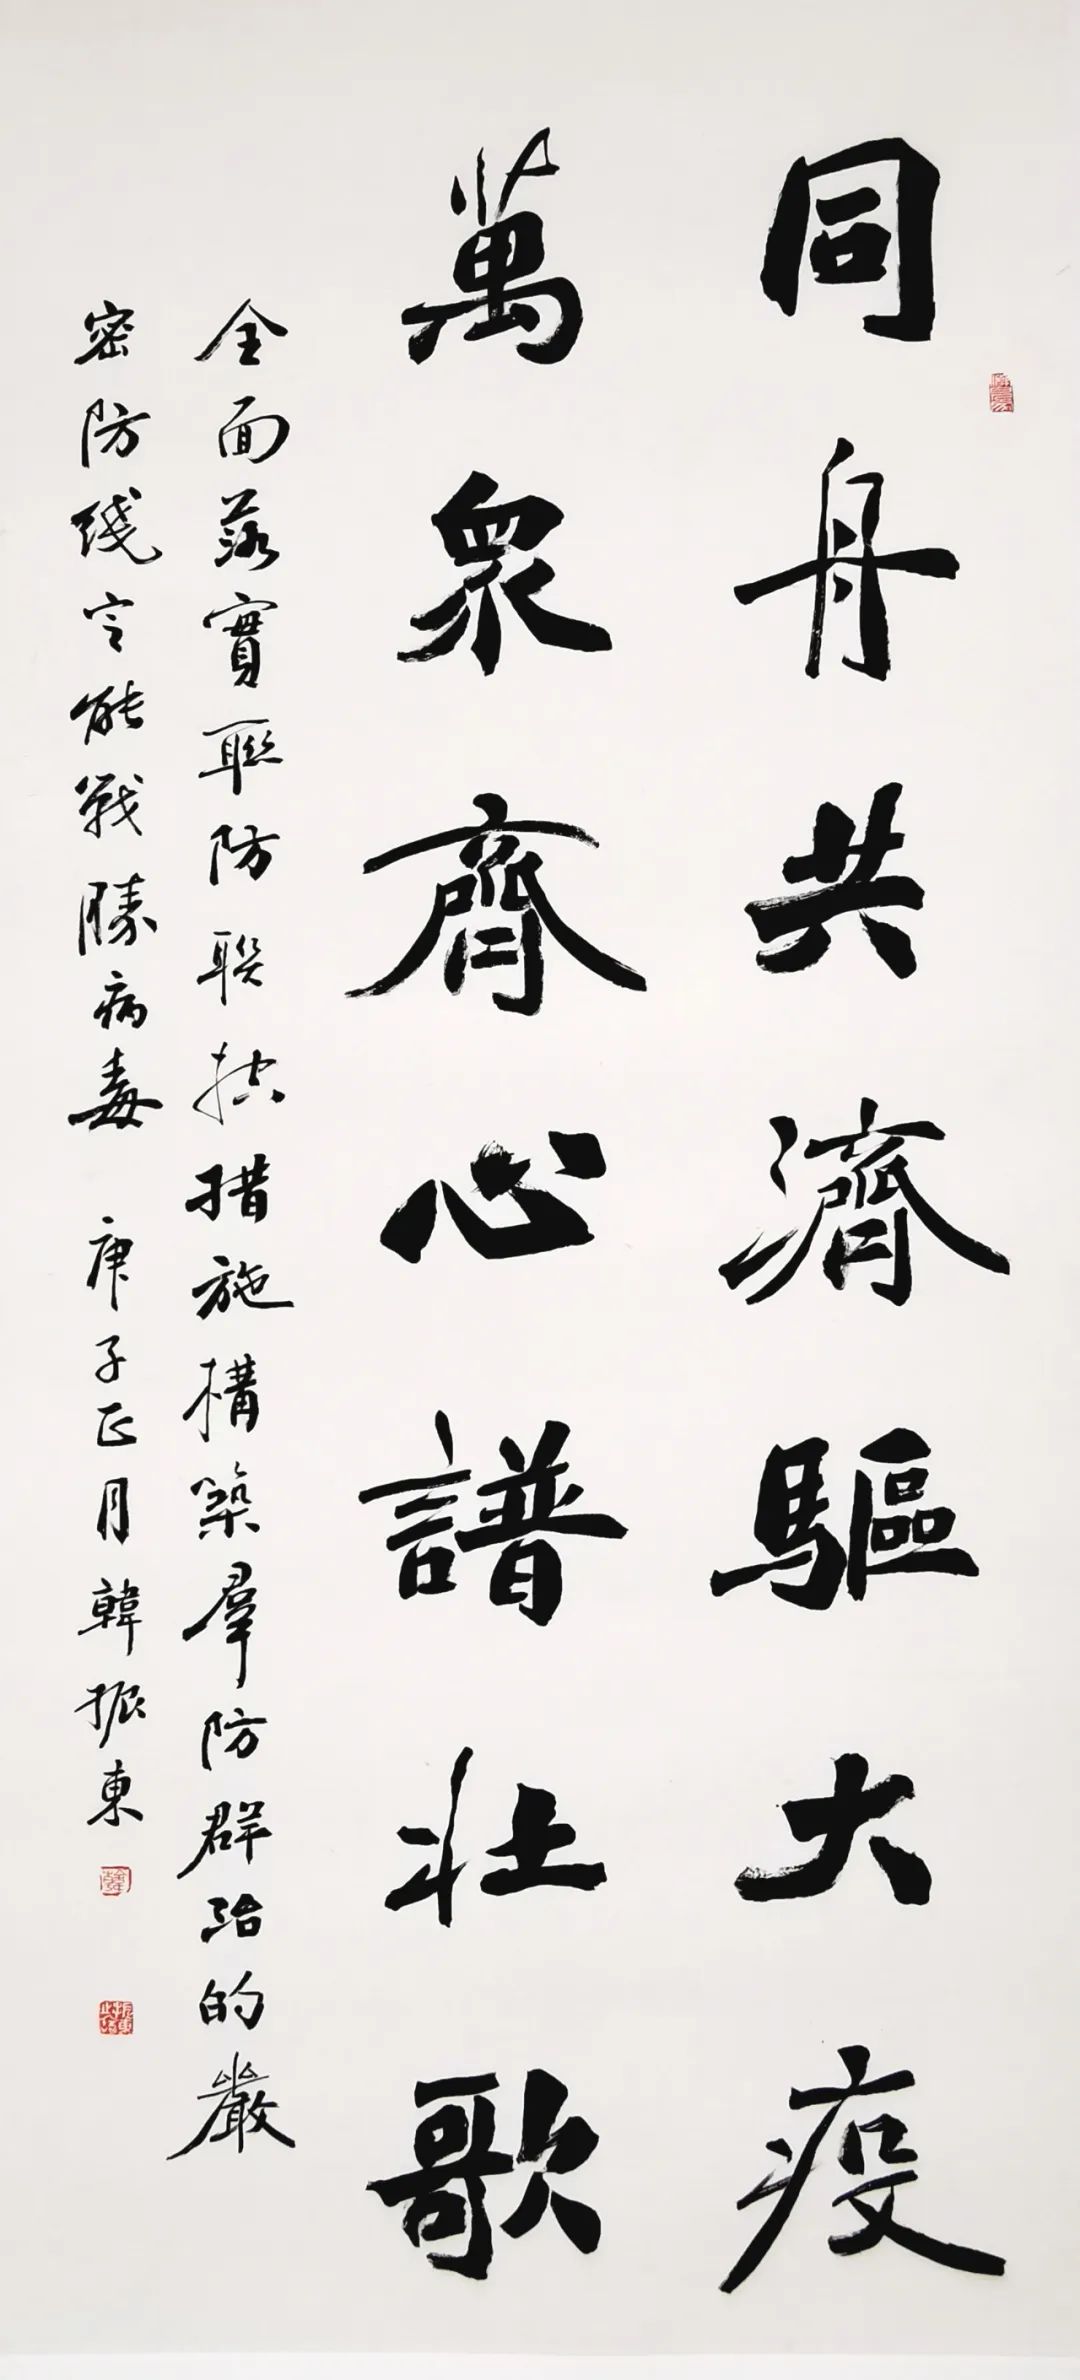 同舟共濟驅大疫
萬眾齊心譜壯歌
全面落實聯防聯控措施構築羣防群治的嚴
密防线定能戰勝病毒 庚子正月韓振東